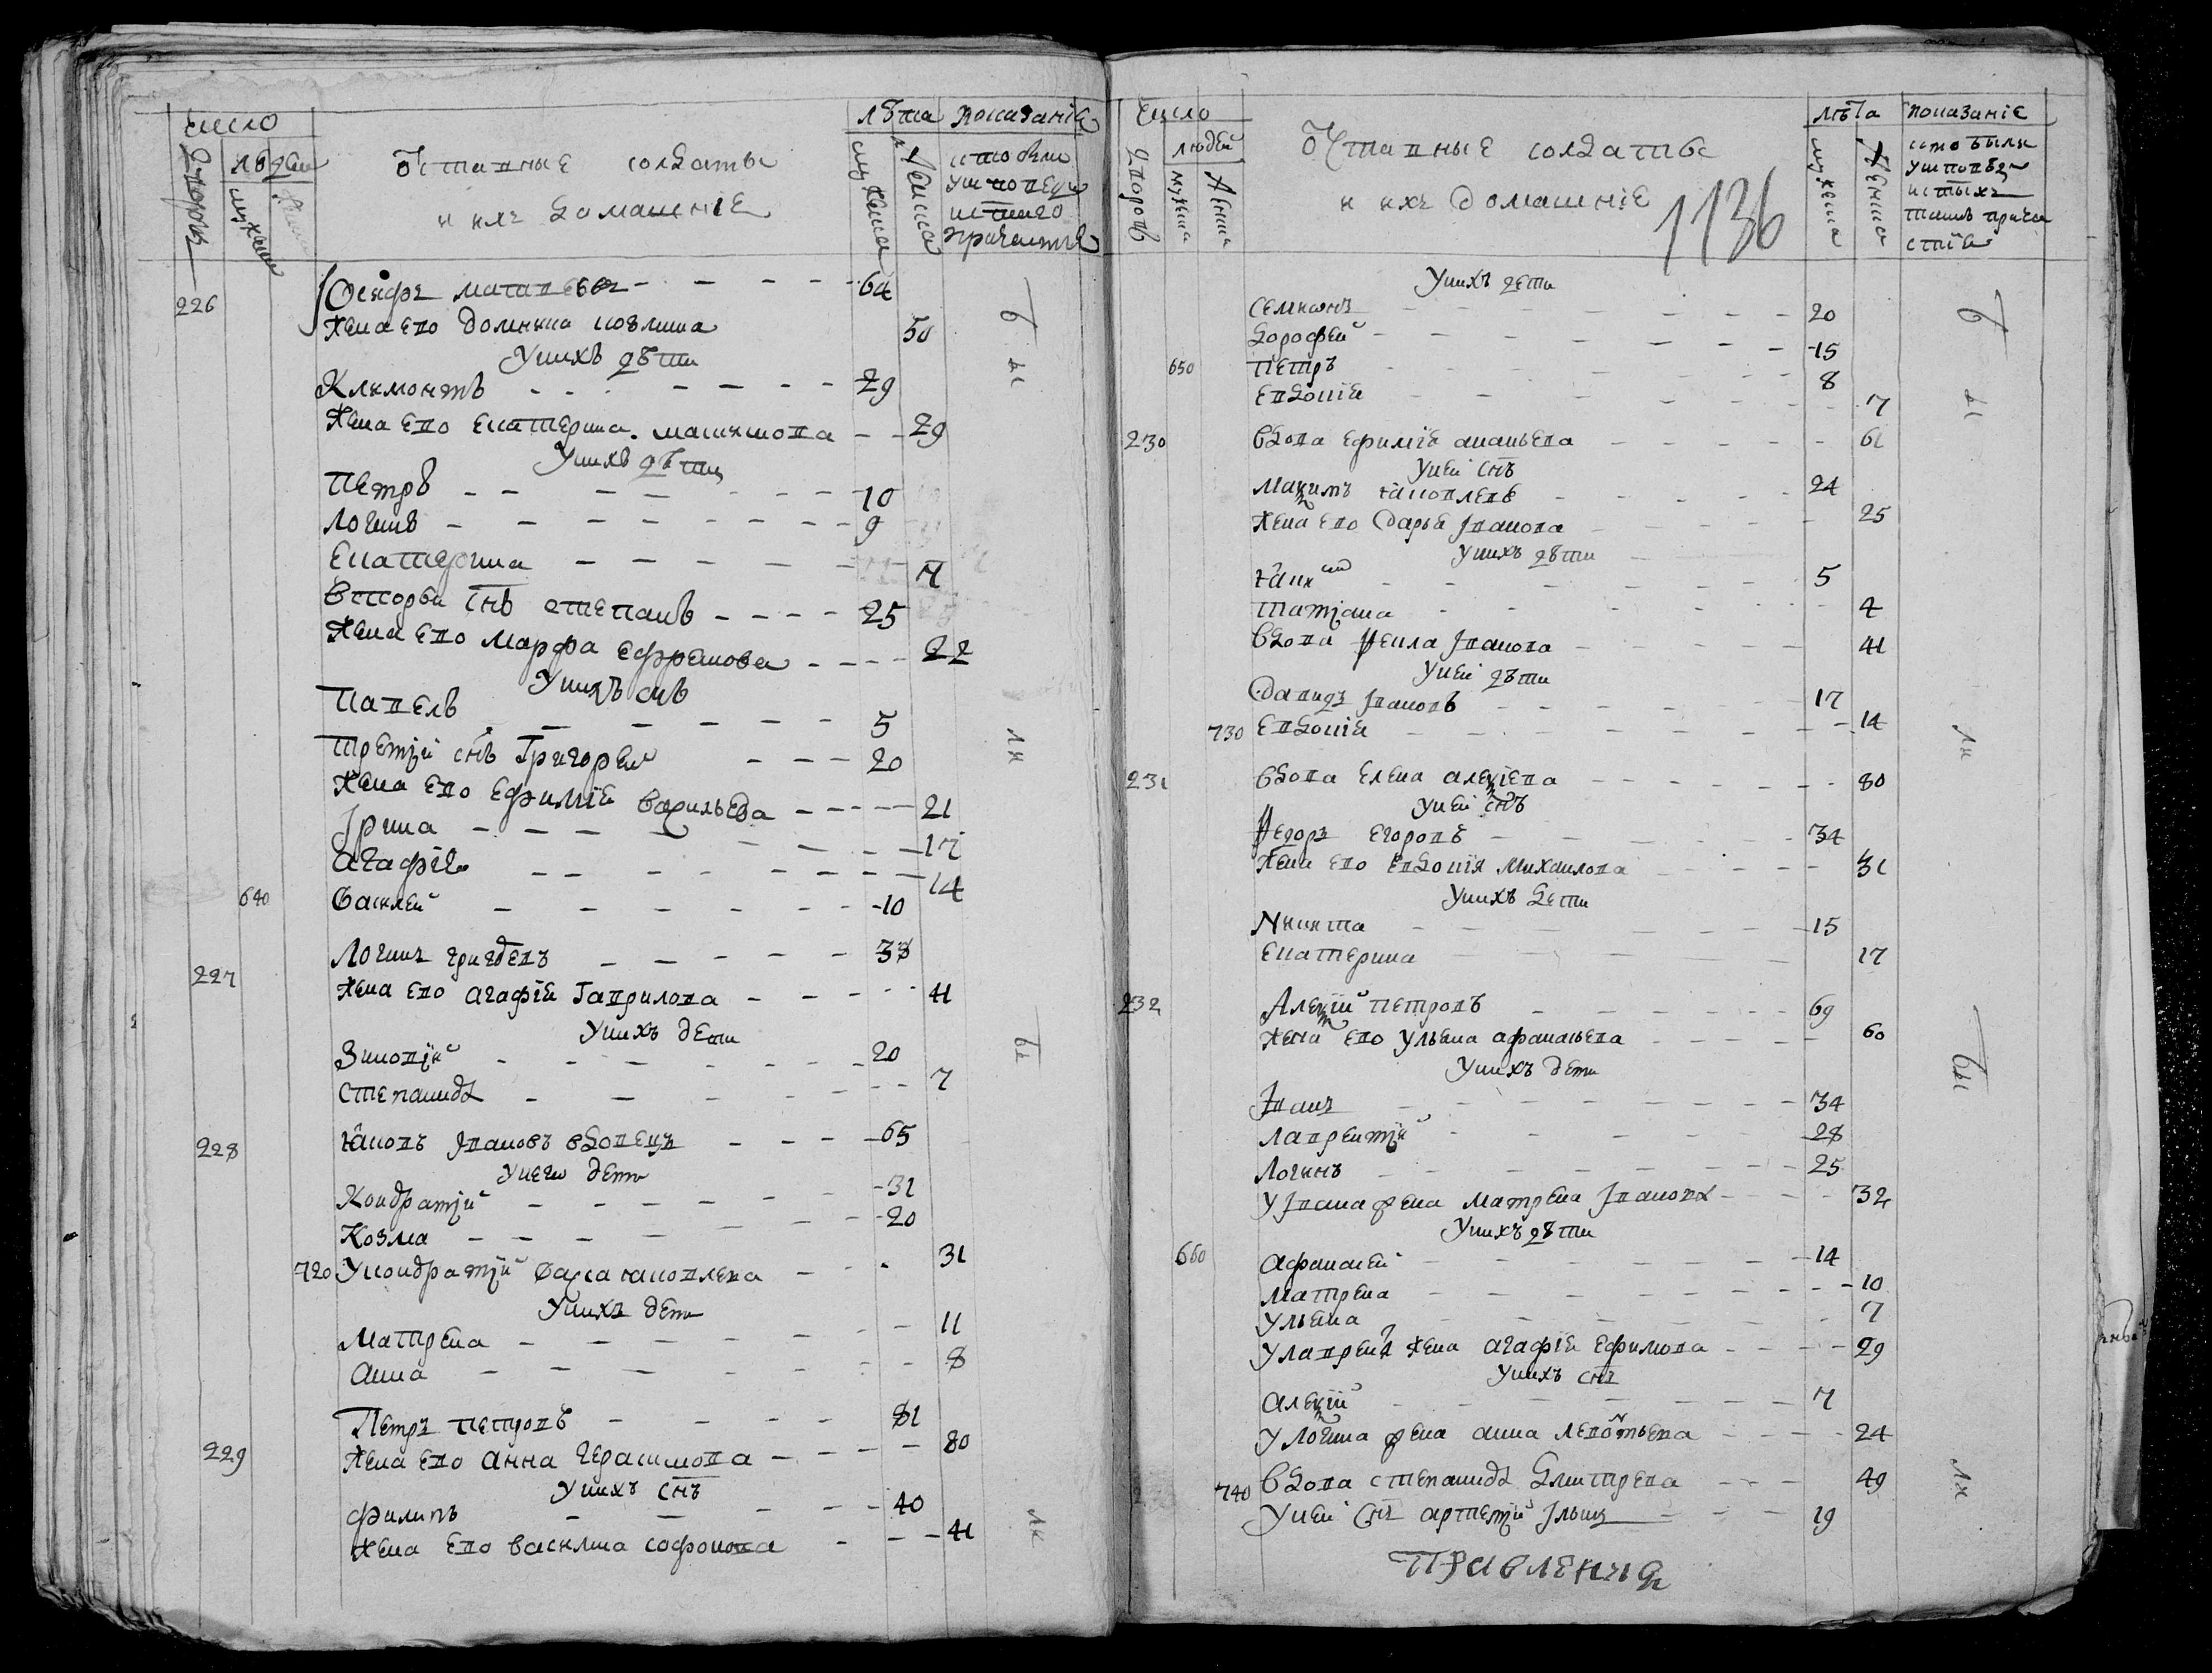 число
дворовъ
людей
мужеска
женска
Отставные солдаты
и ихъ домашніе
лѣта
мужеска
женска
показаніе
кто были
у исповеди
и святаго
причастия
226 Осифъ Матвѣевъ 64
Жена его Домникиа 50
У нихъ дѣти
Климонтъ 29
Жена его Екатерина Максимова 29
У нихъ дѣти
Петръ 10
Логинъ 9
Екатерина 7
Вторы снъ Степанъ 25
Жена его Марфа Ефремова 22
У нихъ снъ
Павелъ 5
Третій снъ Григорей 20
Жена его Ефимія Васильева 21
Ірина 17
Агафія 14
640 Василей 10
227 Логинъ 38
Жена его Агафія Гаврилова 41
У нихъ дети
Зиновій 20
Степанида 7
228 Яковъ Івановъ вдовецъ 65
У него дети
Кондратій 31
Козма 20
720 У Кондратій Яковлева 31
У нихъ дети
Матрена 11
Анна 8
229 Петръ Петровъ 81
Жена его Анна Герасимова 80
У нихъ снъ
Филипъ 40
Жена его Василиса Софонова 41
бы
ли
бы
ли
число
дворовъ
людей
мужска
женска
Отставные солдаты
и ихъ домашніе
1136
лѣта
мужеска
женска
показаніе
кто были
у исповеди
и святыхъ
таинъ прича
стія
У нихъ дети
Семионъ 20
Дорофей 15
650 Петръ 8
Евдокія 7
230 Вдова Ефимія Ананьева 61
У ней снъ
Макимъ Яковлевъ 24
Жена его Дарья Іванова 25
У нихъ дѣти
5
Татіана 4
Вдова Фекла Іванова 41
У ней дѣти
Давидъ Івановъ 17
730 Евдокія 14
231 Вдова Елена Алексіева 80
У ней снъ
Федоръ Егоровъ 34
Жена его Евдокія Михаилова 31
У нихъ дети
Никита 15
Екатерина 17
232 Алексій Петровъ 69
Жена его Ульяна Афанасьева 60
У нихъ дети
Іванъ 34
Лаврентій 28
Логинъ 25
У Івана жена Матрена Іванова 32
У нихъ дѣти
660 Афанасей 14
Матрена 10
Ульяна 7
У Лаврентія жена Агафія Ефимова 29
У нихъ снъ
Алексій 7
У Логина жена Анна Леонтьева 24
740 Вдова Степанида Дмитрева 49
У ней снъ Артемій Ільинъ 19
правления
бы
ли
бы
ли